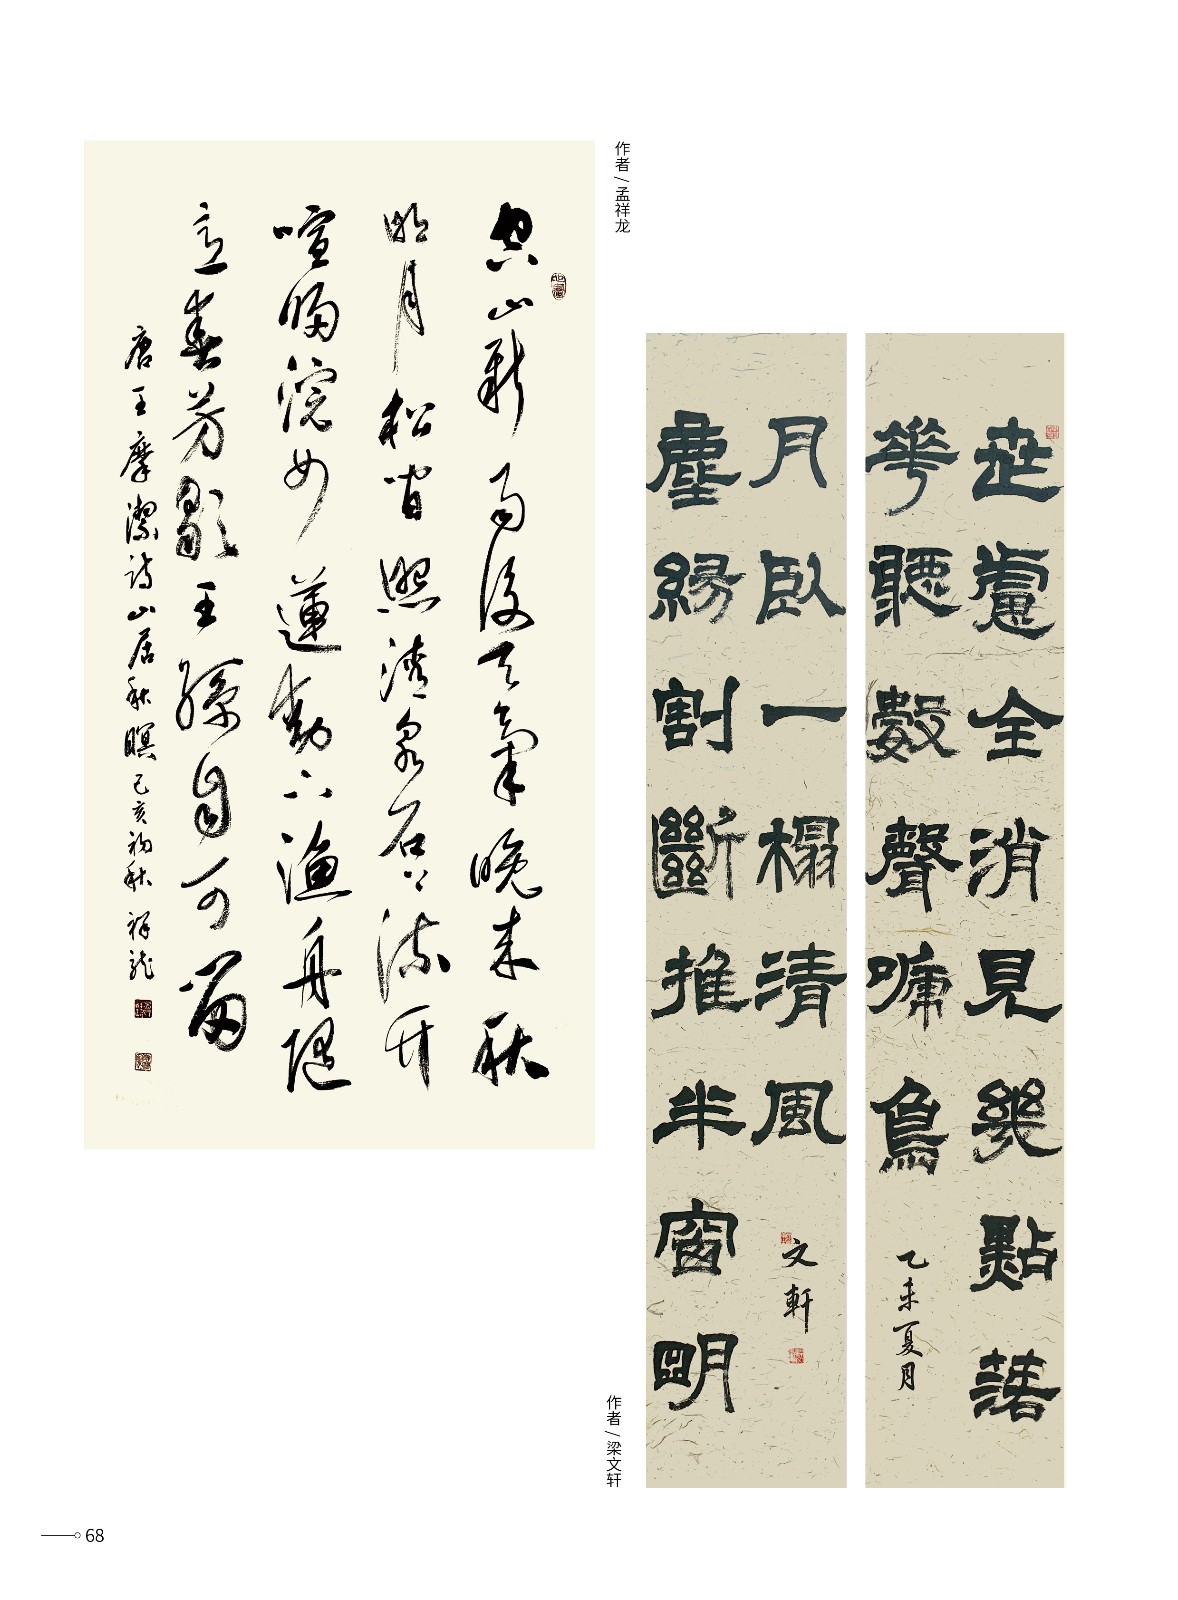 作者/孟祥龙
空山新雨後天氣晚来秋
明月松間照清泉石上流竹
喧歸浣女蓮動下漁舟隨
意春芳歇王孫自可留
唐王摩潔詩山居秋暝己亥初秋祥龍
世慮全消見幾點落
花聽數聲啼鳥
乙未夏月
塵緣割斷推半窗明
月卧一榻清風
文軒
作者/梁文轩
68